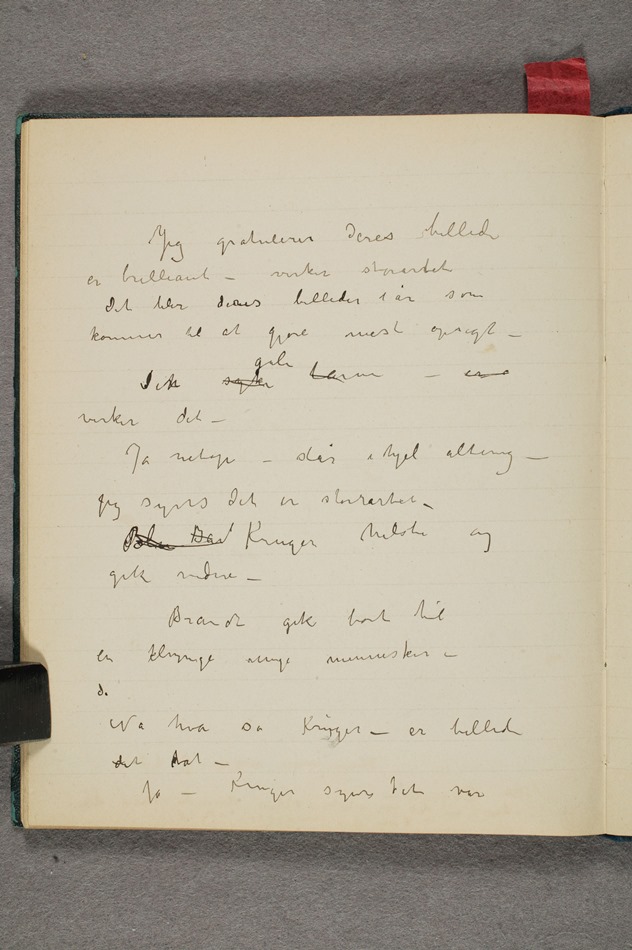 Jeg gratulerer Deres billede
er brilliant – virker storartet
Det blir deres billeder i år som
kommer til at gjøre mest opsigt –
gule
Den syke farve – er
virker det –
Ja netop – slår ihjel alting –
jeg synes det er storartet –
Kruger hilste og
gik videre –
Brandt gik bort til
en klynge unge mennesker –
d.
Na hva sa Krüger – er billede
det
Ja – Kruger synes det var